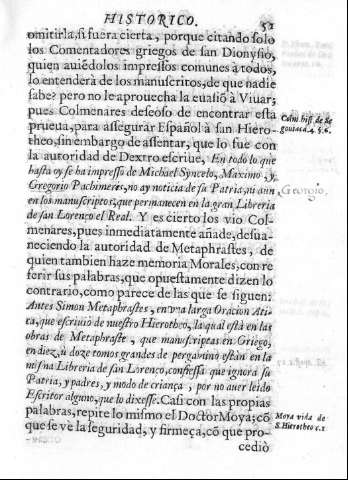 HISTORICO. 52
omitirla, si fuera cierta, porque citando solo
los Comentadores griegos de san Dionysio,
quien auiēdolos impressos comunes à todos,
lo entenderà de los manuscritos, de que nadie
sabe? pero no le aprouecha la euasiō à Viuar;
pues Colmenares deseoso de encontrar esta
prueua, para assegurar Español à san Hiero-
theo, sin embargo de assentar, que lo fue con
la autoridad de Dextro escriue, En todo lo que
hasta oy se ha impresso de Michael Syncelo, Maximo, y
Gregorio Pachimeres, no ay noticia de su Patria, ni aun
en los manuscriptos, que permanecen en la gran Libreria
de san Lorenço el Real. Y es cierto los vio Col-
menares, pues inmediatamente añade, desua-
neciendo la autoridad de Metaphrastes, de
quien tambien haze memoria Morales, con re
ferir sus palabras, que opuestamente dizen lo
contrario, como parece de las que se siguen:
Antes Simon Metaphrastes, en vna larga Oracion Ati-
ca, que escriuiò de nuestro Hierotheo, la qual està en las
obras de Metaphraste, que manuscriptas en Griego,
en diez, ù doze tomos grandes de pergamino estàn en la
misma Libreria de san Lorenço, confiessa que ignora su
Patria, y padres, y modo de criança, por no auer leido
Escritor alguno, que lo dixesse. Casi con las propias
palabras, repite lo mismo el Doctor Moya; cō
que se ve la seguridad, y firmeça, cō que pro-
cediò
Colm hist. de Se
gouia c. 4. 5. 6.
Georgio,
Moya vida de
S. Hierotheo c. 1